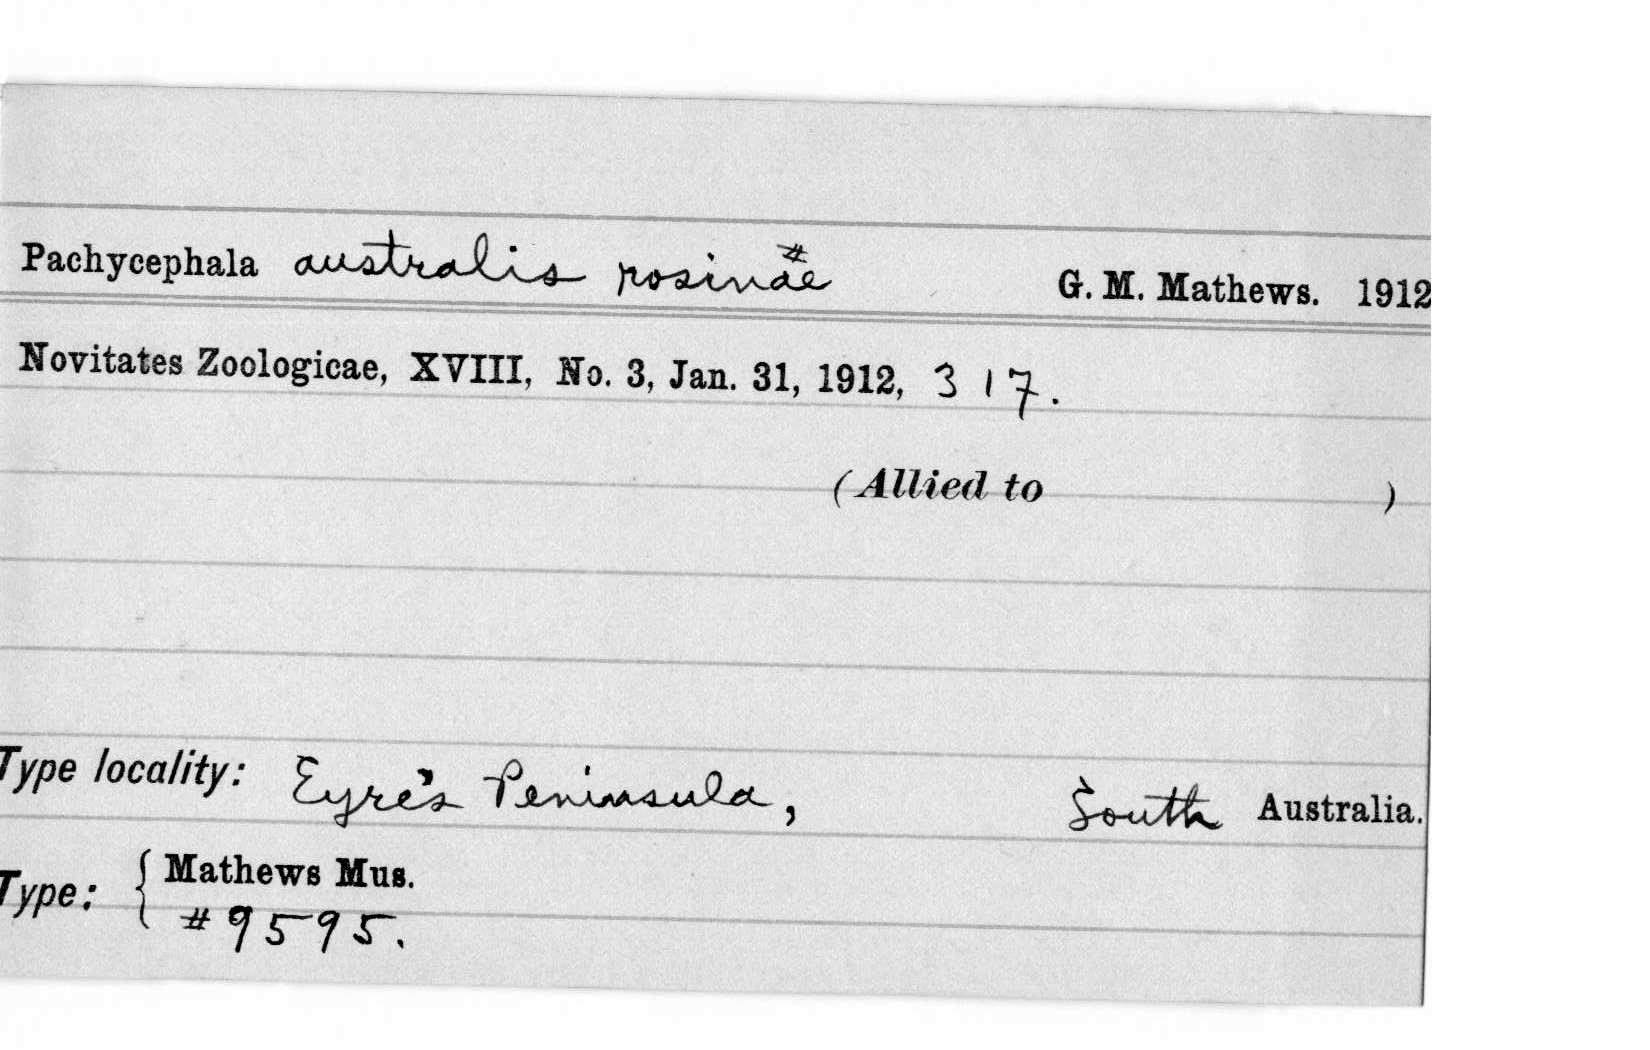 Pachycephala australis rosinae # G. M. Mathews. 1912
Novitates Zoologicae, XVIII, No. 3, Jan. 31, 1912, 317.
(Allied to )
Type locality: Eyre's Peninsula, South Australia.
Type: { Mathews Mus.
#9595.